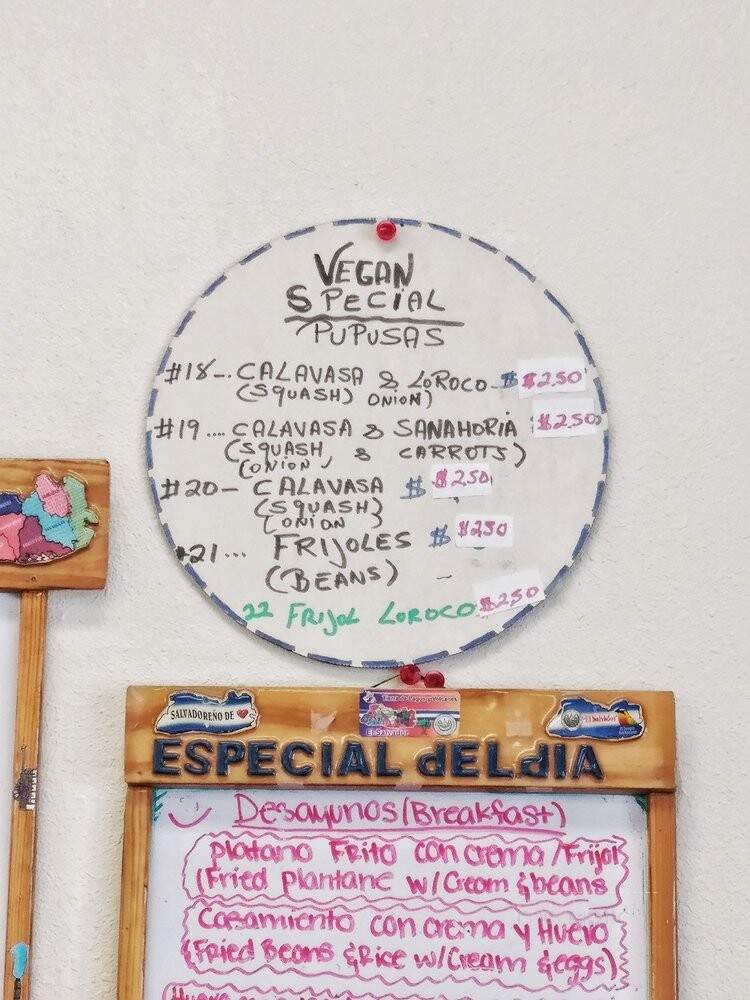 VEGAN
SPECIAL
PUPUSAS
#18-. CALAVASA & LOROCO $ $2.50
(SQUASH) ONION)
#19.... CALAVASA & SANAHORIA $2.50
(SQUASH, & CARROTS)
(ONION,
#20- CALAVASA $ $2.50
(SQUASH)
(ONION
#21... FRIJOLES $ $2.50
(BEANS)
22 FRIJOL LOROCO $2.50
SALVADOREÑO DE
El Salvador
El Salvador
ESPECIAL dEL dIA
Desayunos (Breakfast)
platano Frito con crema / Frijol
(Fried plantane w/ Cream & beans
Casamiento con crema y Huevo
(Fried Beans & Rice w/ Cream & eggs)